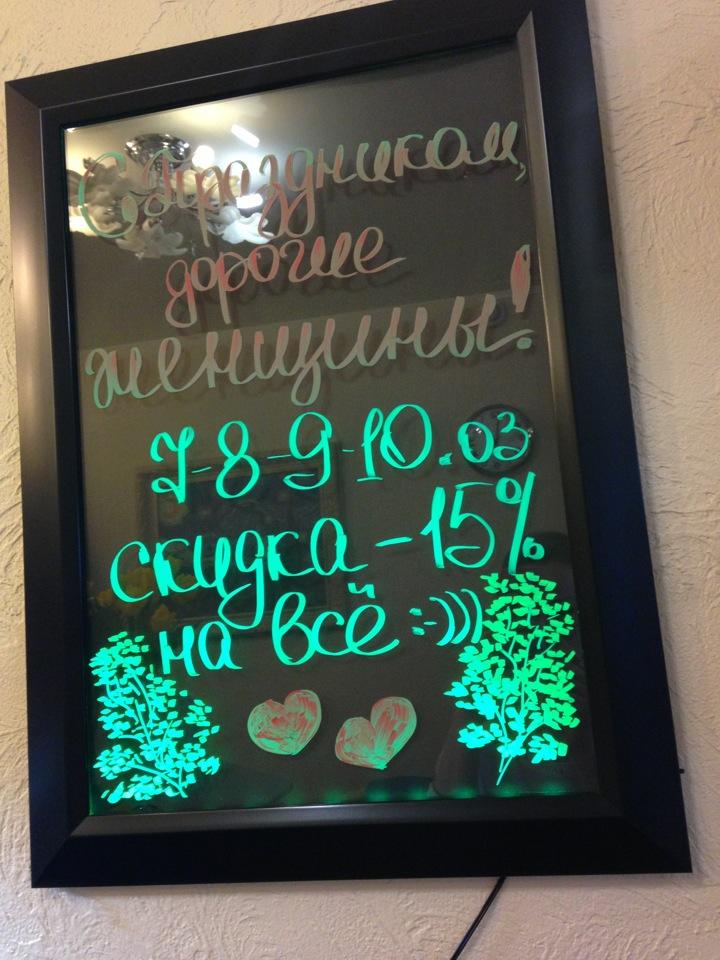 С Праздником,
дорогие
женщины!
7-8-9-10.03
скидка - 15%
на всё :-)))